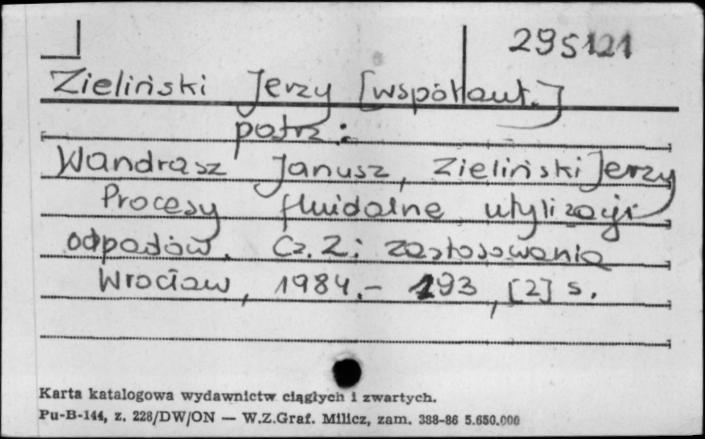 295121
Zieliński Jerzy [współaut.]
patrz:
Wandrasz Janusz, Zieliński Jerzy
Procesy fluidalne utylizacji
odpadów. Cz. 2: zastosowania
Wrocław, 1984.- 193, [2] s.
Karta katalogowa wydawnictw ciągłych i zwartych.
Pu-B-144, z. 228/DW/ON — W.Z.Graf. Milicz, zam. 388-86 5.650.000